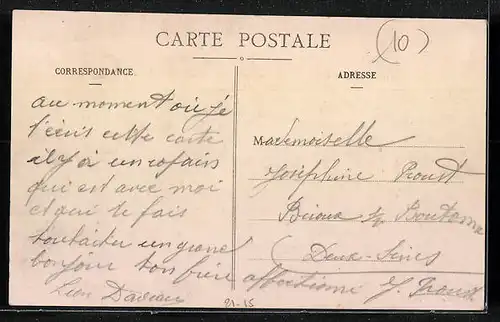 CARTE POSTALE
(10)
CORRESPONDANCE
ADRESSE
au moment où je
t'écris cette carte
il y a un copain
qui est avec moi
et qui te fais
souhaiter un grand
bonjour ton frère affectionné J. Proust
Léon
21-15
Mademoiselle
Joséphine Proust
Brioux
Deux-Sèvres